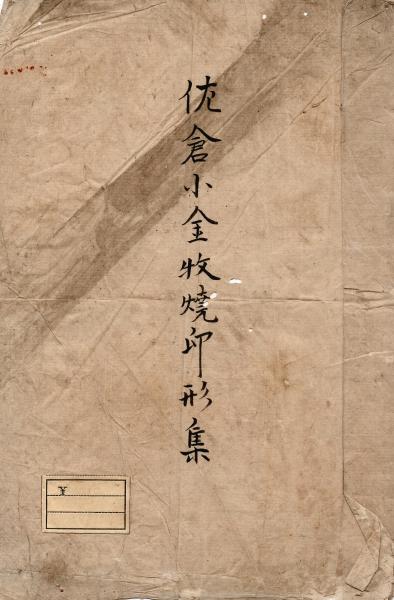 佐倉小金牧燒印形集